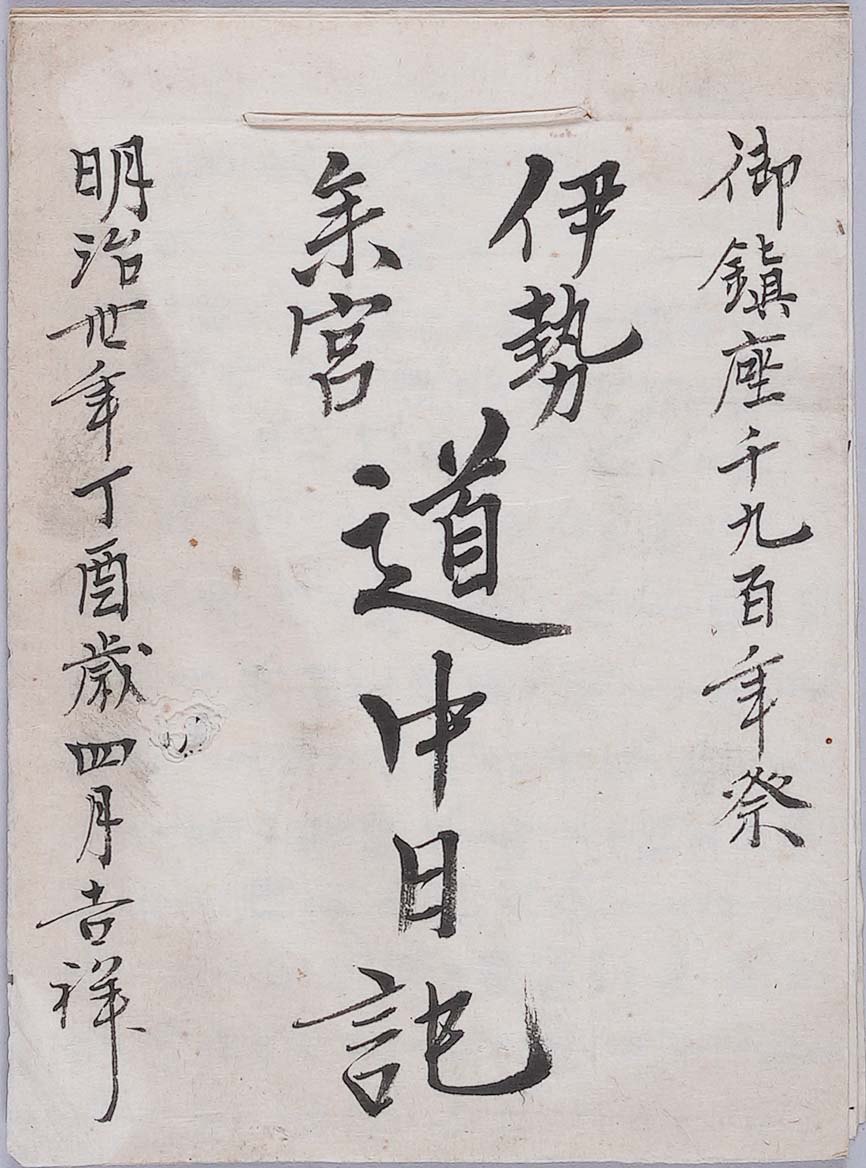 御鎮座千九百年祭
伊勢
参宮
道中日記
明治丗年丁酉歳四月吉祥